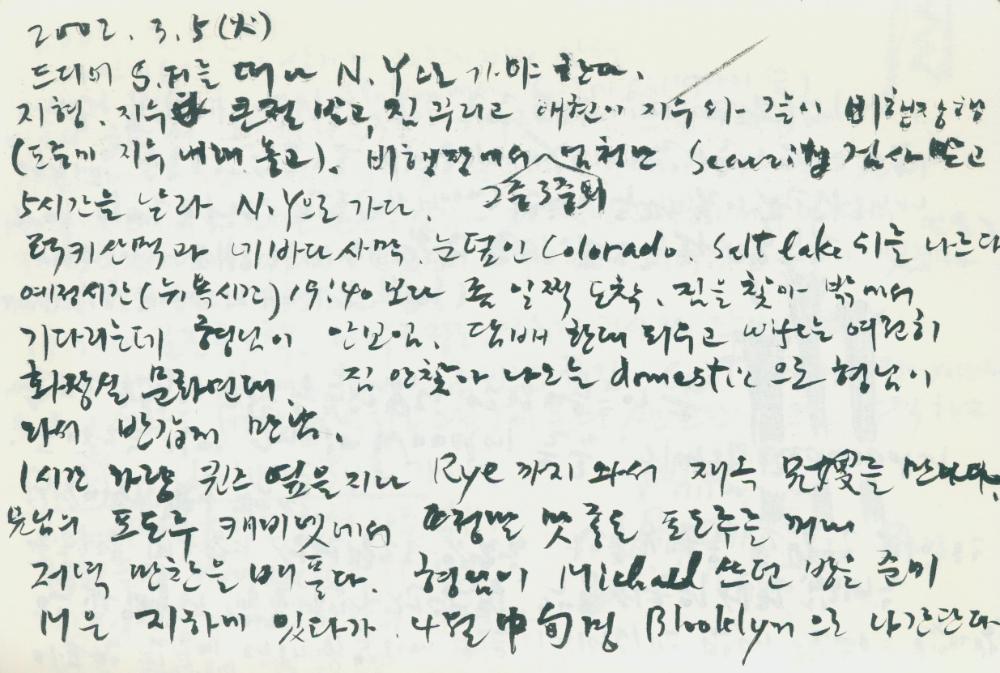 2002. 3. 5 (火)
드디어 S.F를 떠나 N.Y으로 가야 한다.
지형, 지우 큰절 받고, 짐 꾸리고 애현이 지우와 같이 비행장행
(도중에 지우 내려 놓고). 비행장에서 엄청난 Security 검사 받고
2중 3중의
5시간을 날라 N.Y으로 가다.
럭키산맥과 네바다 사막, 눈덮인 Colorado, Salt lake 위를 나르다
예정시간(뉴욕시간) 19:40보다 좀 일찍 도착. 짐을 찾아 밖에서
기다리는데 형님이 안보임. 담배 한대 피우고 wife는 여전히
화장실 문화인데. 짐 안찾아 나오는 domestic으로 형님이
와서 반갑게 만남.
1시간 가량 퀸즈 옆을 지나 Rye까지 와서 재옥 兄嫂를 만나다.
兄님의 포도주 캐비넷에서 정말 맛 좋은 포도주를 꺼내
저녁 만찬을 배풀다. 형님이 Michael 쓰던 방을 준비
M은 지하에 있다가 4월 中旬경 Blooklyn으로 나간단다